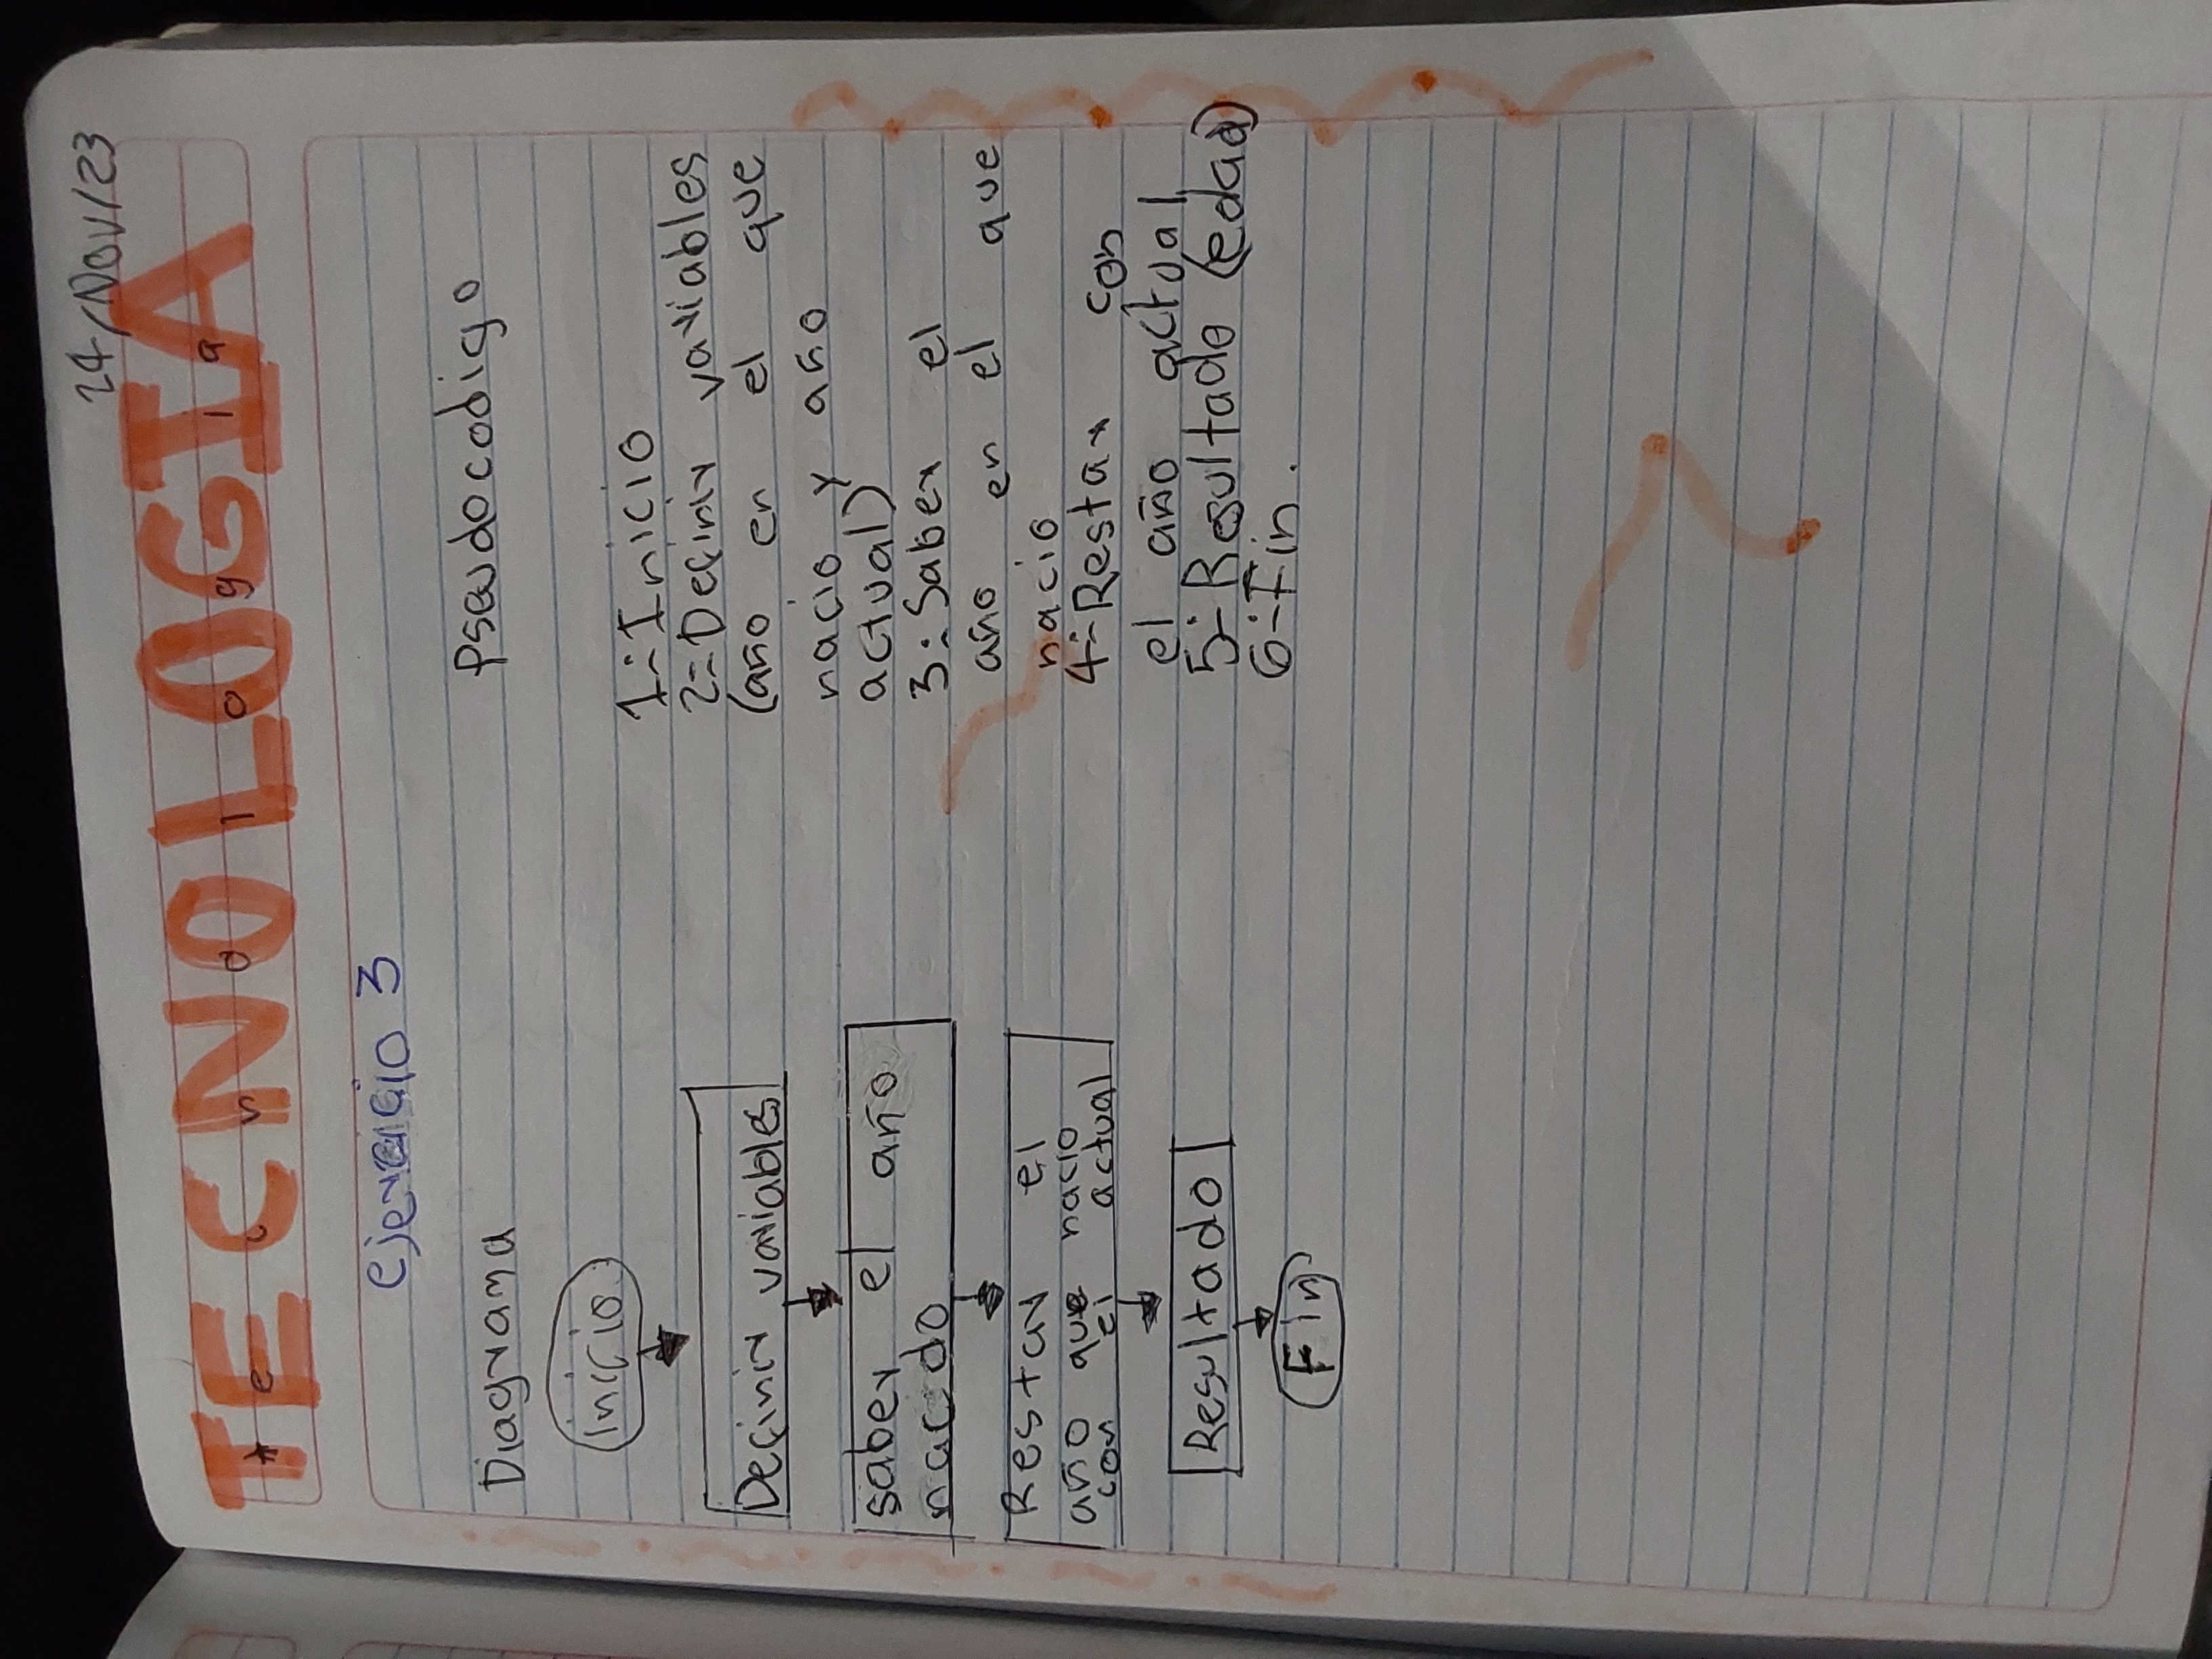 24/Nov/23
TECNOLOGIA
Tecnologia
Ejercicio 3
Diagrama
Inicio
Definir variables
saber el año
nacido
Restar el
año que nacio
con el actual
Resultado
Fin
Pseudocodigo
1:-Inicio
2:-Definir variables
(año en el que
nacio y año
actual)
3:-Saber el
año en el que
nacio
4:-Restar con
el año actual
5:-Resultado (edad)
6:-Fin.